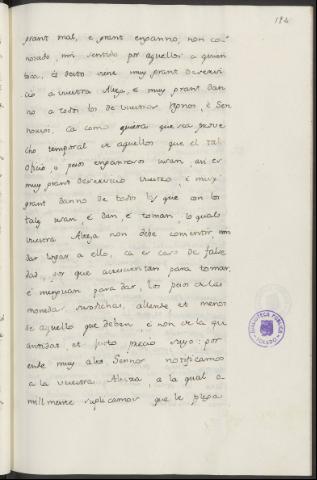 184
grant mal, e grant enganno, non co-
noscido, nin sentido por aquellos a quien
toca, è desto viene muy grant deservi-
cio a vuestra Alteza, è muy grant dan-
no a todos los de vuestros Regnos, è Sen
norios, ca como quiera que sea prove
cho temporal de aquellos que el tal
oficio, o pesos engannosos usan, asi es
muy grant deservicio vuestro, è muy
grant danno de todos los que con los
tales usan è dan, è toman, lo qual
vuestra Alteza non debe consentir, nin
dar logar a ello, ca es caso de false
dad, por que acrescientan para tomar,
è menguan para dar, los pesos de las
monedas susodichas, allende et menos
de aquello que deben, è non de la qu
antidat et justo precio suyo: por
ende muy alto Sennor notificamos
a la vuestra Alteza, a la qual a
mill mente suplicamos que le plega
BIBLIOTECA PUBLICA
TOLEDO